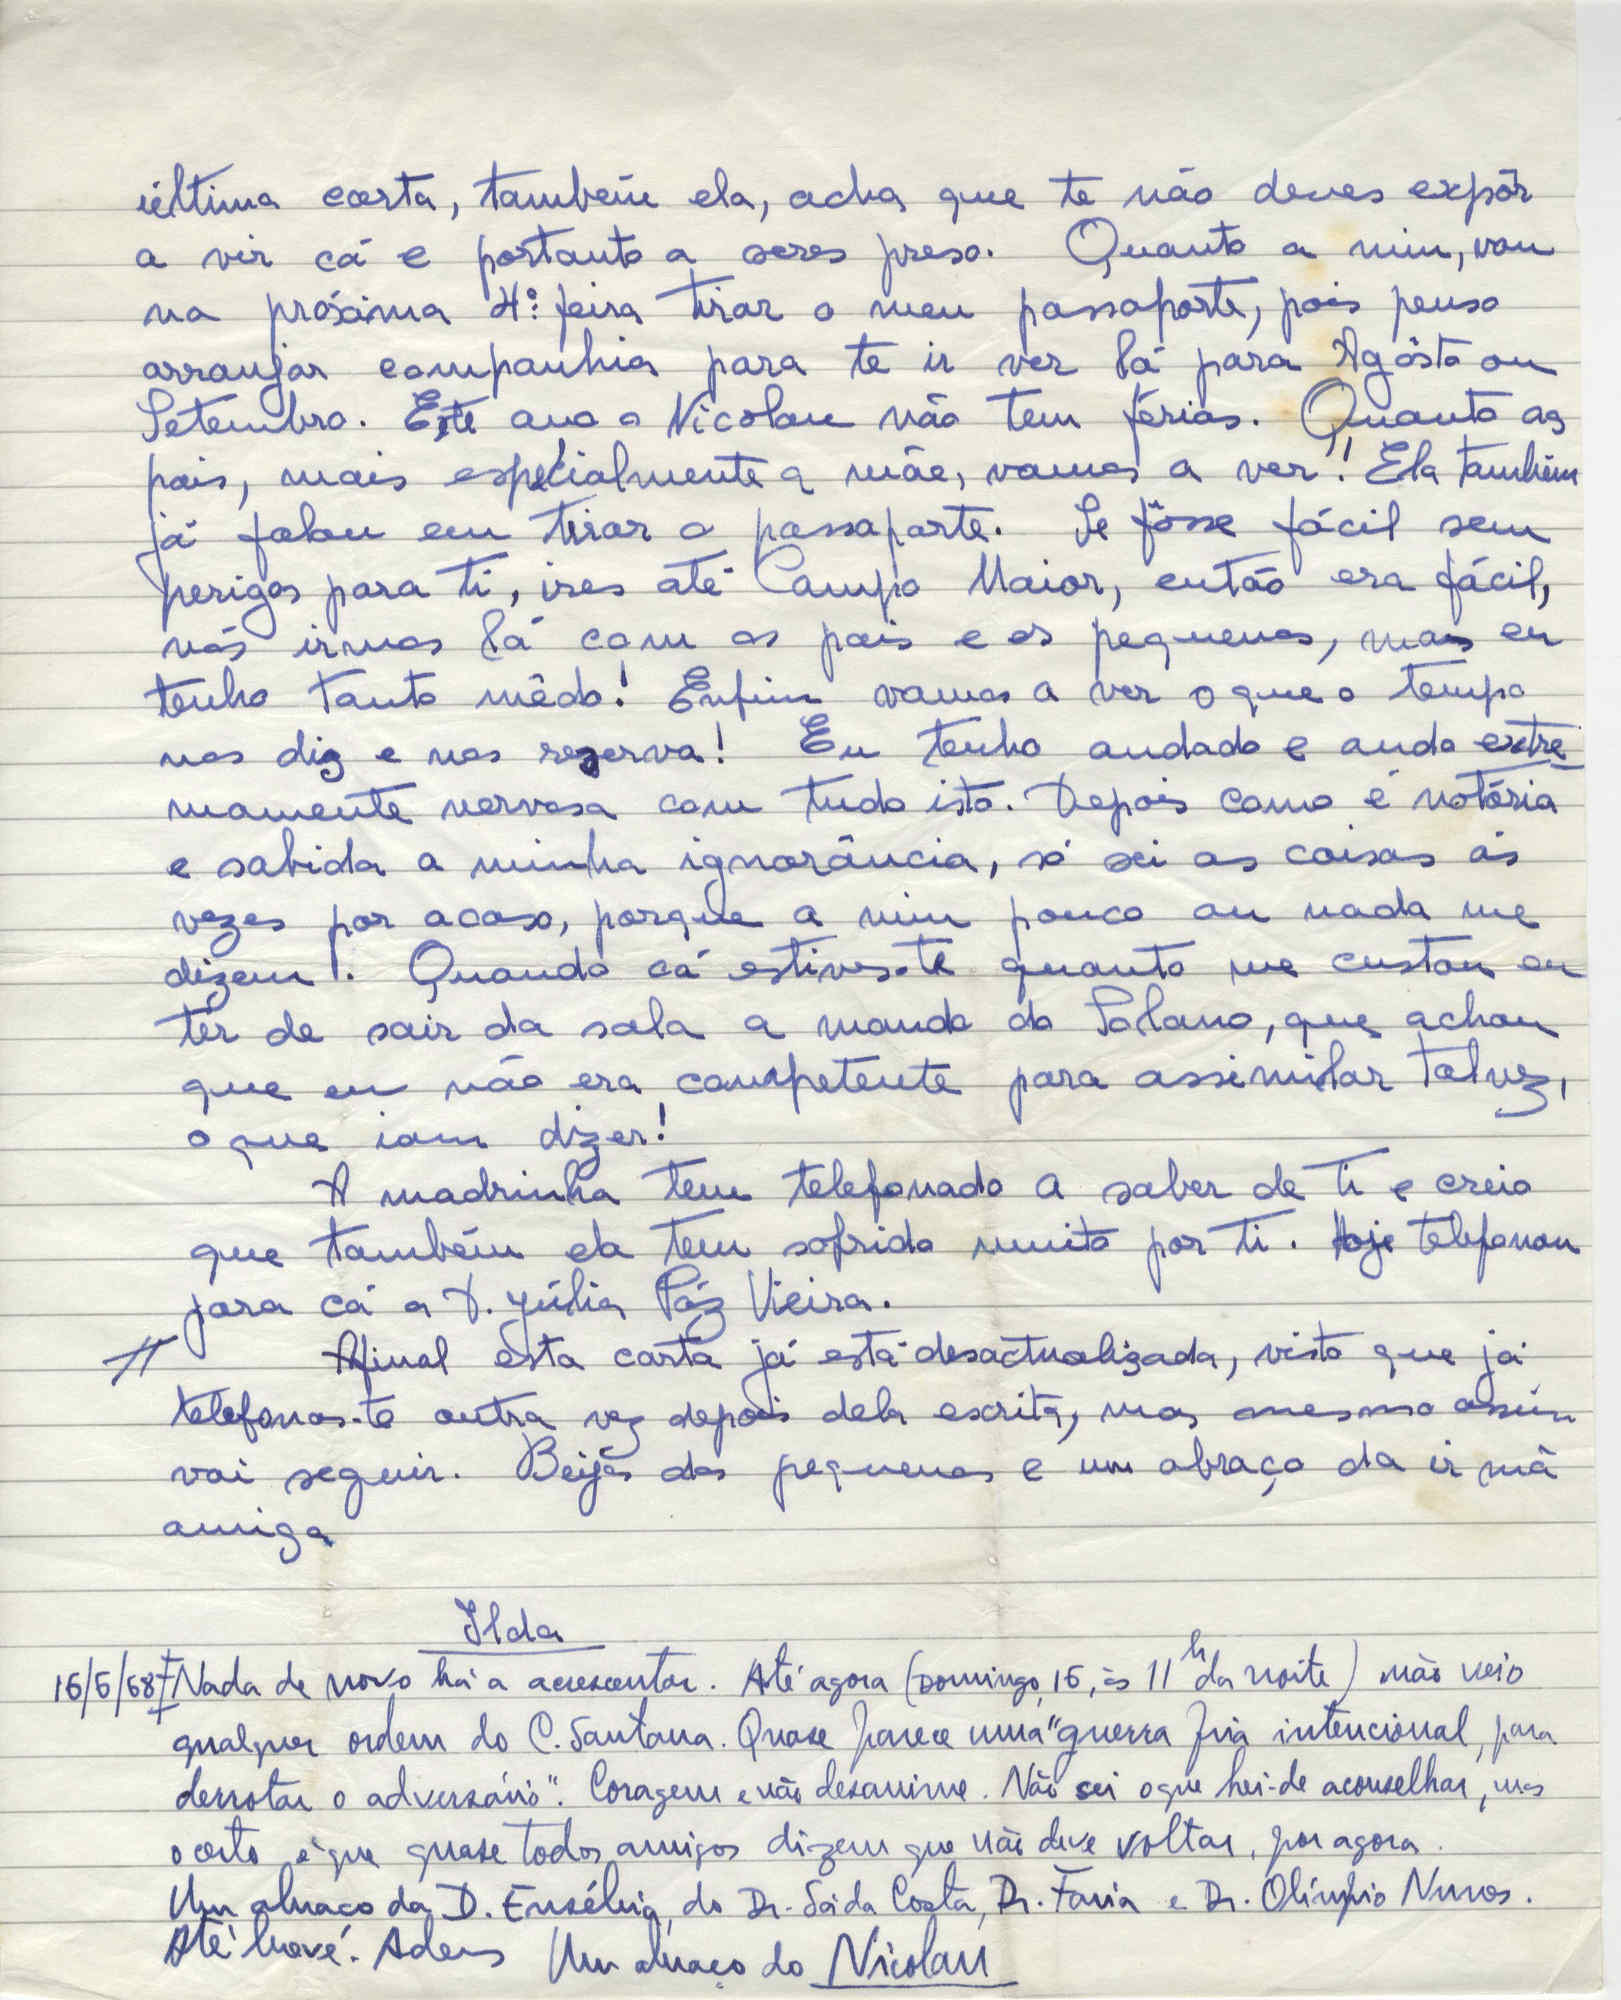 última carta, também ela, acha que te não deves expôr
a vir cá e portanto a seres preso. Quanto a mim, vou
na próxima 4ª feira tirar o meu passaporte, pois penso
arranjar companhia para te ir ver lá para Agôsto ou
Setembro. Este ano o Nicolau não tem férias. Quanto aos
pais, mais especialmente a mãe, vamos a ver! Ela também
já falou em tirar o passaporte. Se fôsse fácil sem
perigos para ti, ires até Campo Maior, então era fácil,
nós irmos lá com os pais e os pequenos, mas eu
tenho tanto mêdo! Enfim vamos a ver o que o tempo
nos diz e nos reserva! Eu tenho andado e ando extre-
mamente nervosa com tudo isto. Depois como é notória
e sabida a minha ignorância, só sei as coisas ás
vezes por acaso, porque a mim pouco ou nada me
dizem! Quando cá estives-te quanto me custou eu
ter de sair da sala a mando do Solano, que achou
que eu não era competente para assimilar talvez,
o que iam dizer!
A madrinha tem telefonado a saber de ti e creio
que também ela tem sofrido muito por ti. Hoje telefonou
para cá a D. Júlia Páz Vieira.
// Afinal esta carta já está desactualizada, visto que já
telefonas-te outra vez depois dela escrita, mas mesmo assim
vai seguir. Beijos dos pequenos e um abraço da irmã
amiga
Ilda
16/6/68 Nada de novo há a acrescentar. Até agora (Domingo, 16, às 11h da noite) não veio
qualquer ordem do C. Santana. Quase parece uma "guerra fria intencional, para
derrotar o adversário". Coragem e não desanime. Não sei o que hei-de aconselhar, mas
o certo é que quase todos amigos dizem que não deve voltar, por agora.
Um abraço da D. Eusébia, do Dr. Sá da Costa, Dr. Faria e Dr. Olímpio Nunes.
Até breve. Adeus Um abraço do Nicolau